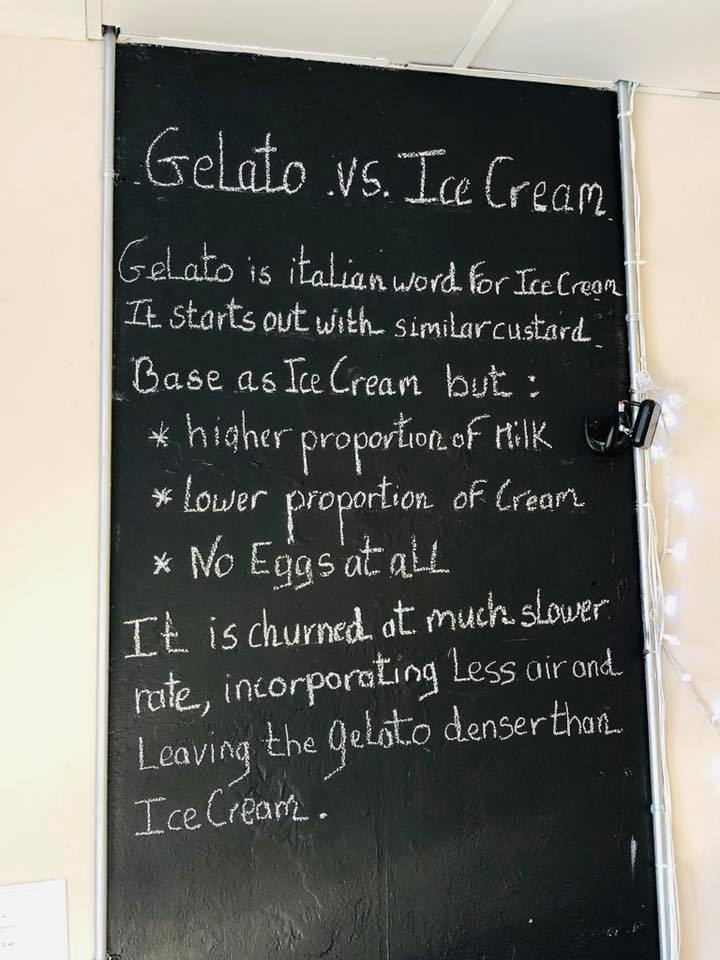 Gelato .vs. Ice Cream
Gelato is italian word for Ice Cream
It starts out with similar custard
Base as Ice Cream but :
* higher proportion of Milk
* Lower proportion of Cream
* No Eggs at all
It is churned at much slower
rate, incorporating Less air and
Leaving the gelato denser than
Ice Cream .